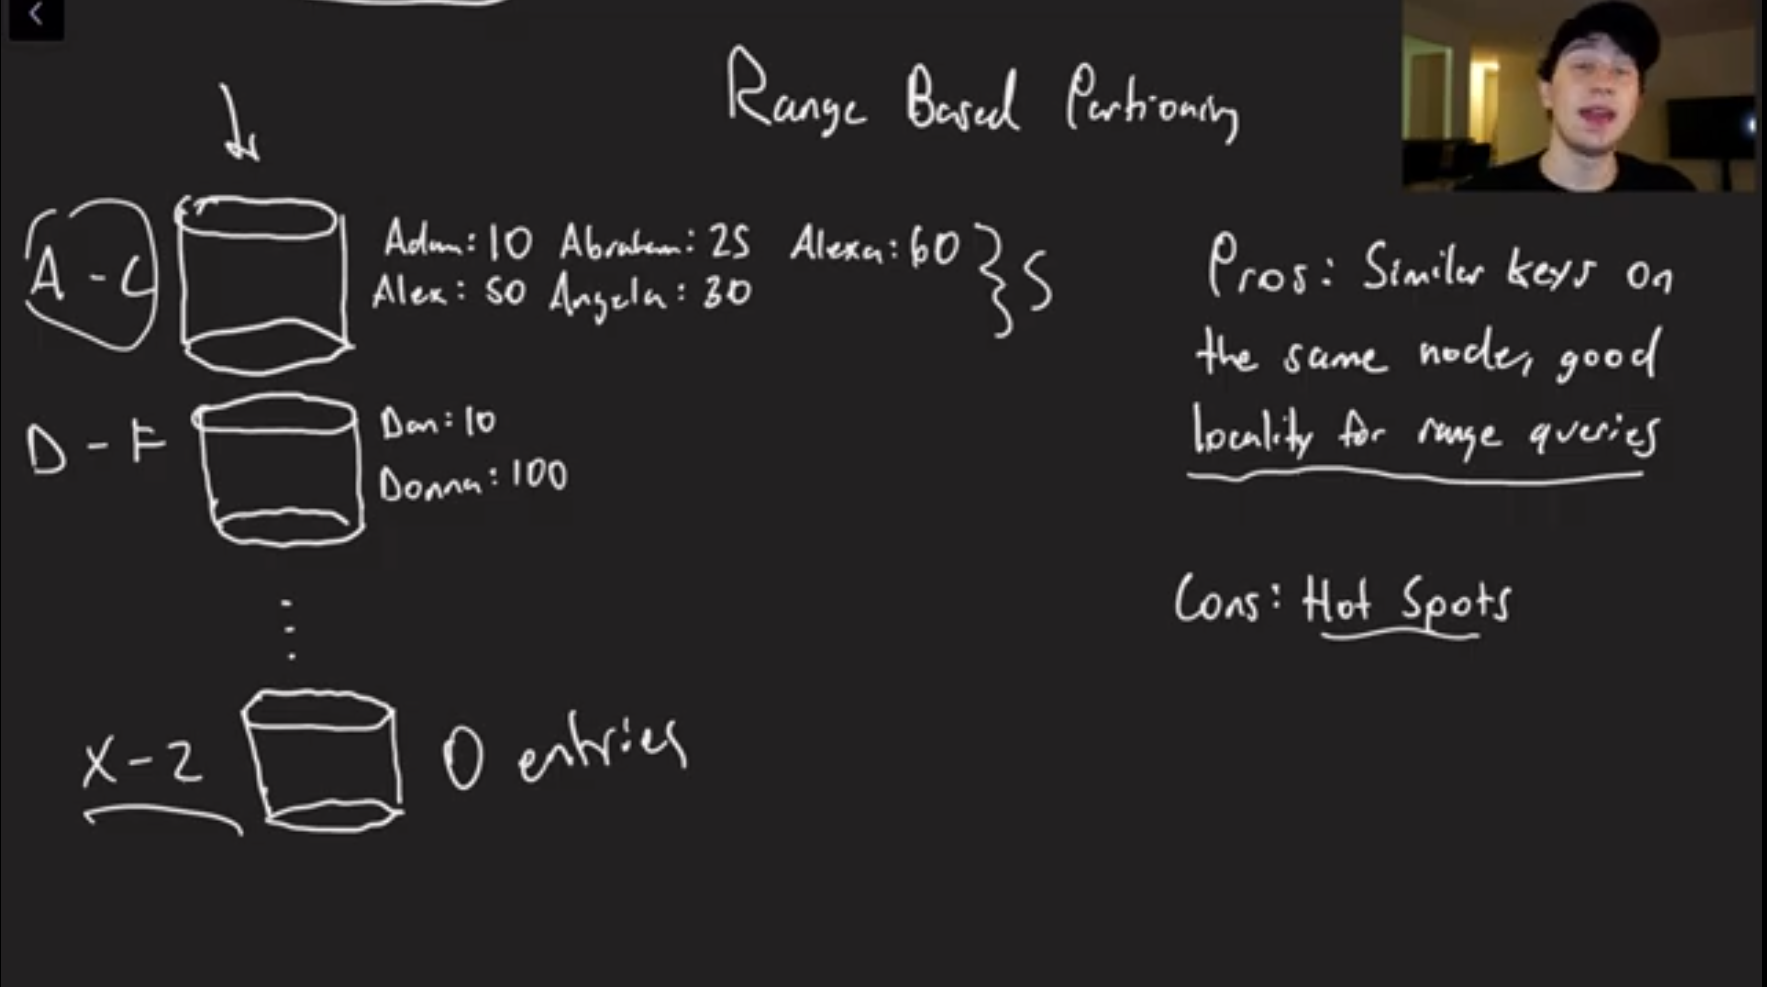 Range Based Partioning
A - C
Adam: 10 Abraham: 25 Alexa: 60 } 5
Alex: 50 Angela: 30
D - F
Dan: 10
Donna: 100
X - Z
0 entries
Pros: Similar keys on
the same node, good
locality for range queries
Cons: Hot Spots